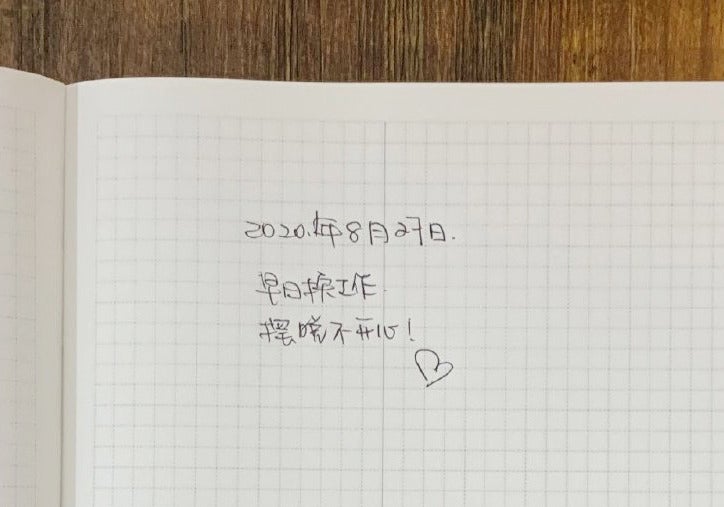 2020.年8月27日.
早日换工作.
摆脱不开心!